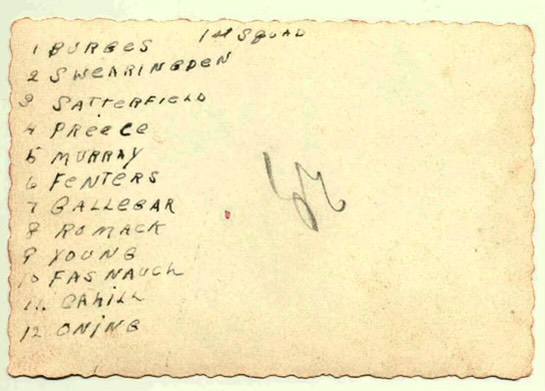 1st SQUAD
1 BURGES
2 SWEARINGDEN
3 SATTERFIELD
4 PREECE
5 MURRAY
6 FENTERS
7 GALLEGAR
8 ROMACK
9 YOUNG
10 FASNAUCH
11. CAHILL
12 ONING